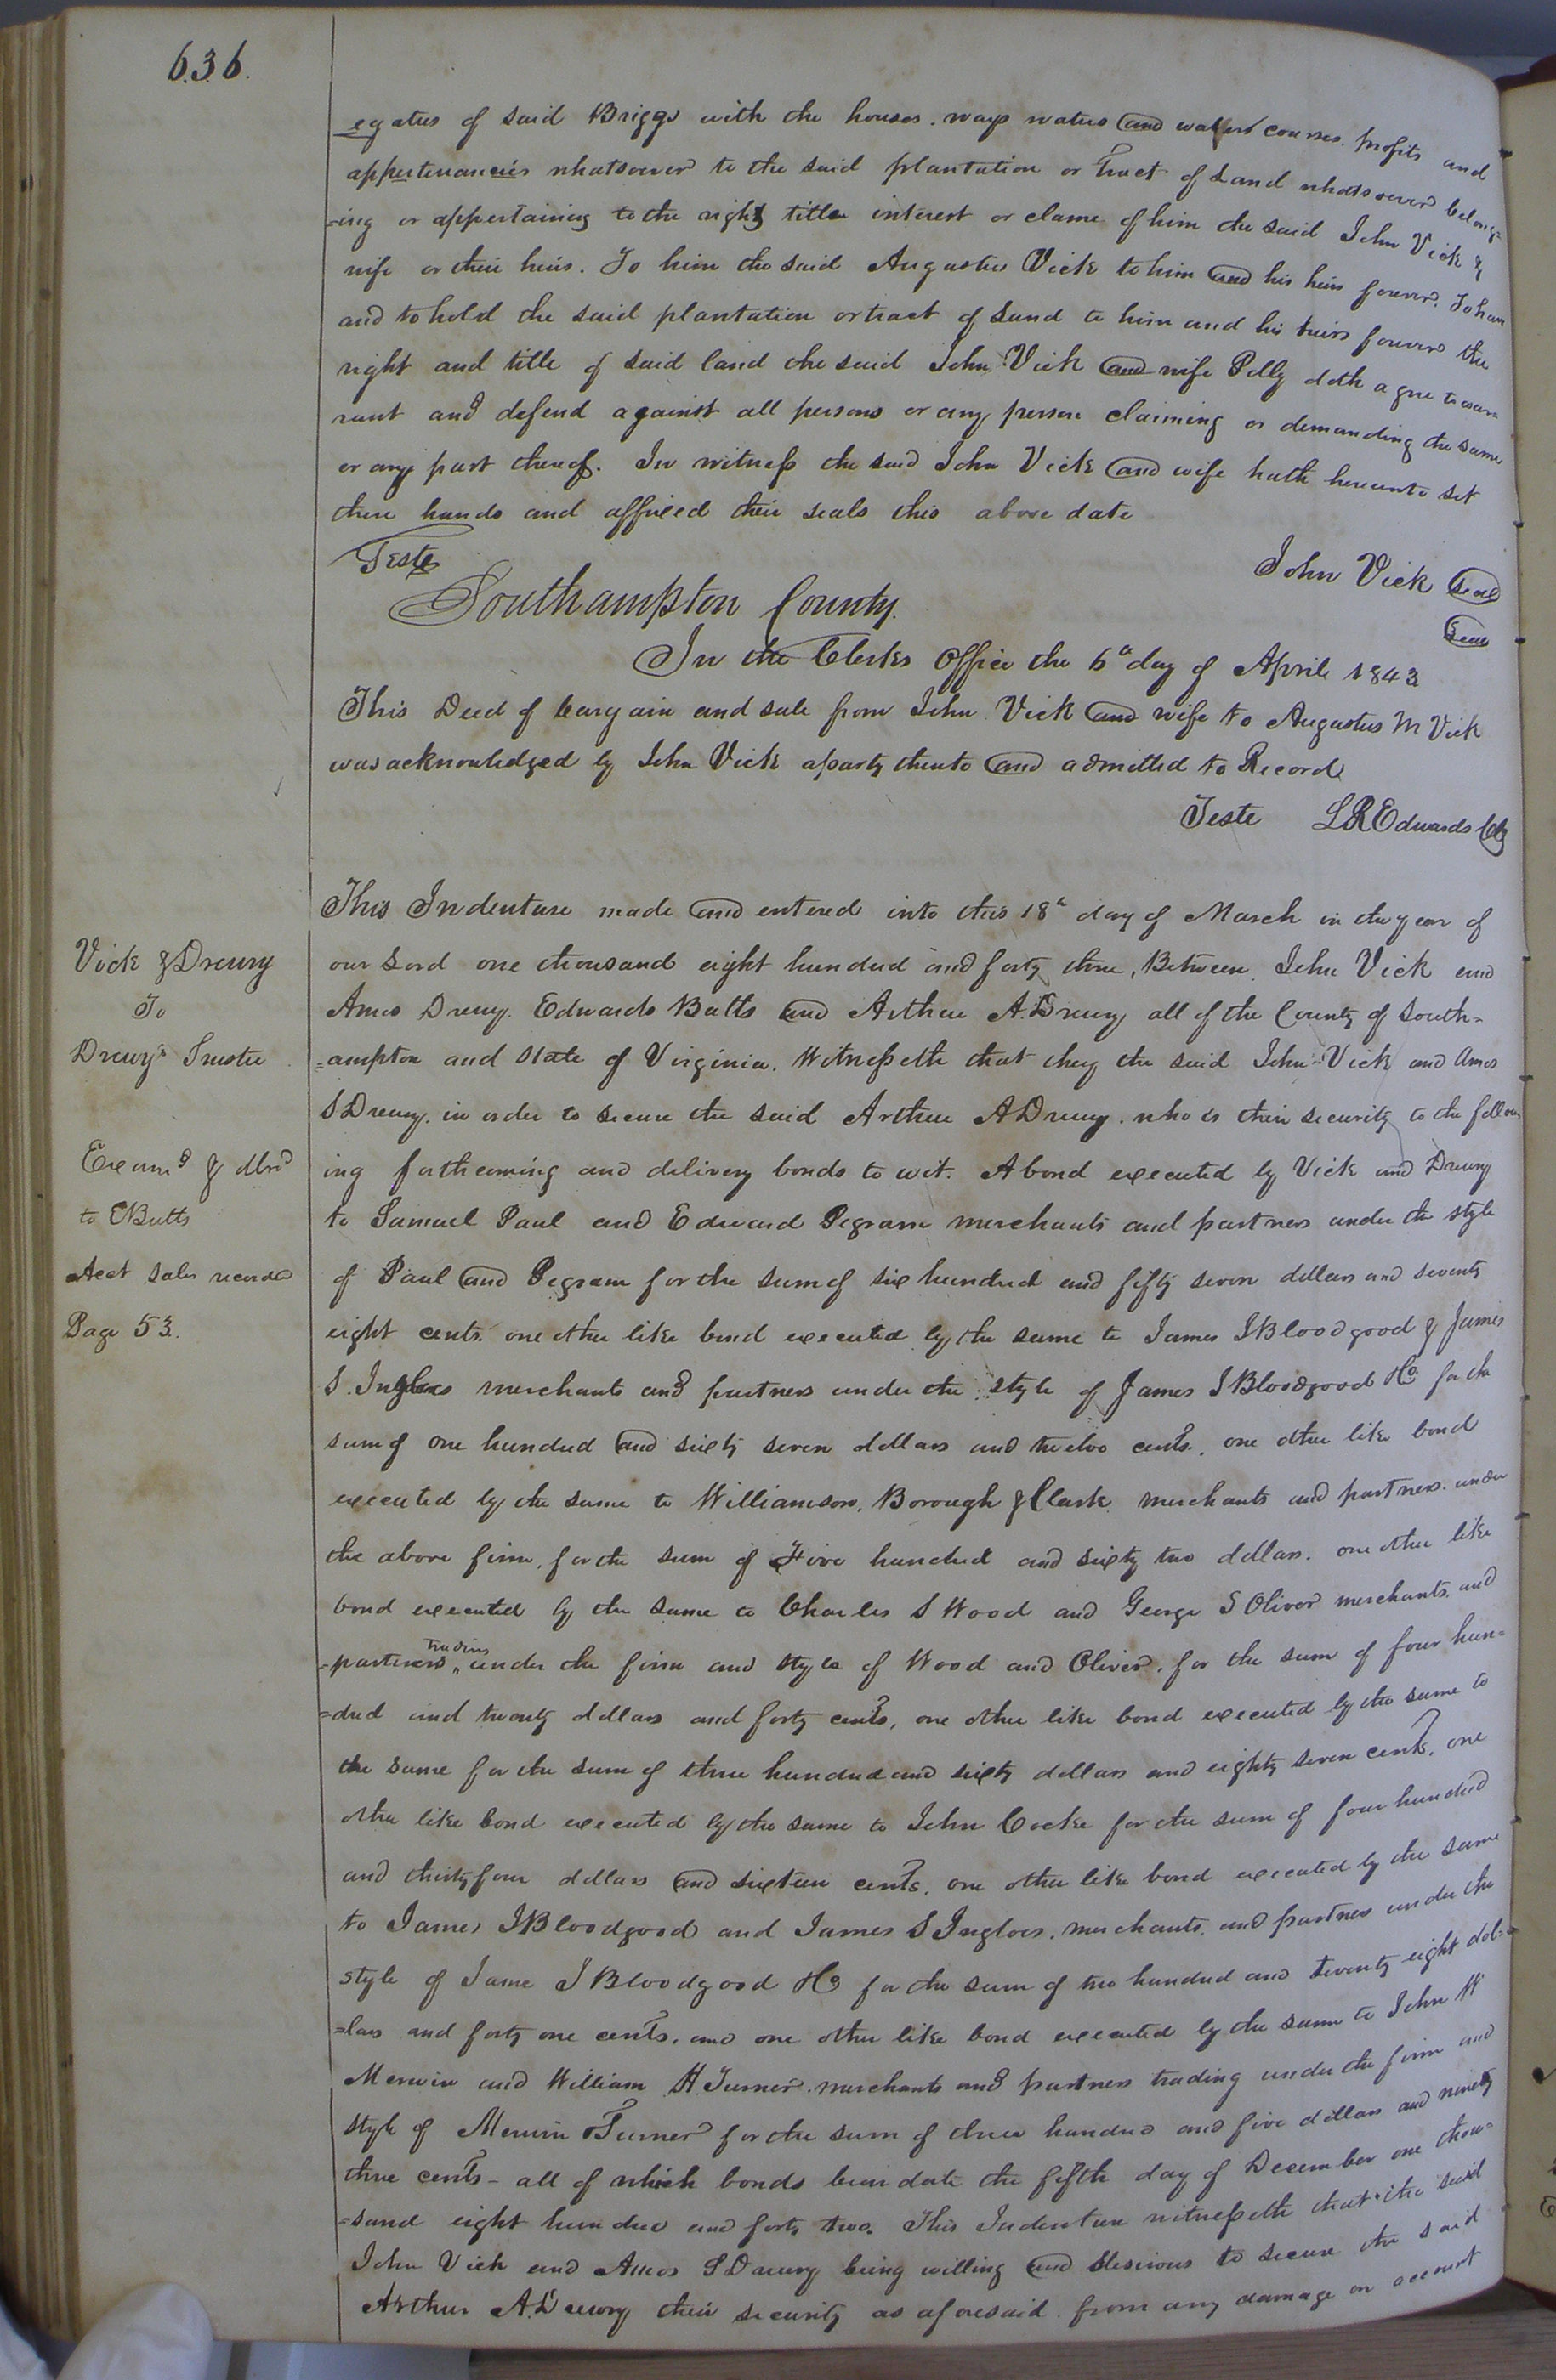 636.
egatees of said Briggs with the houses. ways waters and water courses. profits and
appertenancies whatsoever to the said plantation or Tract of Land whatsoever belong=
-ing or appertaining to the right title interest or clame of him the said John Vick &
wife or their heirs. To him the said Augustus Vick to him and his heirs forever. To have
and to hold the said plantation or tract of Land to him and his heirs forever the
right and title of said land the said John Vick and wife Polly doth agree to war=
rant and defend against all persons or any person claiming or demanding the same
or any part thereof. In witness the said John Vick and wife hath hereunto set
there hands and affixed their seals this above date
Teste
John Vick Seal
Seal
Southampton County.
In the Clerks Office the 6th day of April 1843
This Deed of bargain and sale from John Vick and wife to Augustus M Vick
was acknowledged by John Vick a party thereto and admitted to Record
Teste L R Edwards Clk
Vick & Drewry
To
Drewry's Trustee
Examd & dlvd
to E Butts
Acct sales recorded
Page 53.
This Indenture made and entered into this 18th day of March in the year of
our Lord one thousand eight hundred and forty three, Between John Vick and
Amos Drewry. Edwards Butts and Arthur A. Drewry all of the County of South=
=ampton and State of Virginia. Witnesseth that they the said John Vick and Amos
S Drewry. in order to secure the said Arthur A Drewry. who is their security to the follow
ing forthcoming and delivery bonds to wit. A bond executed by Vick and Drewry
to Samuel Paul and Edward Pegram merchants and partners under the style
of Paul and Pegram for the sum of six hundred and fifty seven dollars and seventy
eight cents. one other like bond executed by the same to James I Bloodgood & James
S. Ingloes merchants and partners under the style of James I Bloodgood & Co for the
sum of one hundred and sixty seven dollars and twelve cents. one other like bond
executed by the same to Williamson, Borough & Clark merchants and partners under
the above firm, for the sum of Five hundred and sixty two dollars. one other like
bond executed by the same to Charles S Wood and George S Oliver merchants and
-partners trading under the firm and style of Wood and Oliver. for the sum of four hun=
=dred and twenty dollars and forty cents, one other like bond executed by the same to
the same for the sum of three hundred and sixty dollars and eighty seven cents, one
other like bond executed by the same to John Cocke for the sum of four hundred
and thirty four dollars and sixteen cents. one other like bond executed by the same
to James I Bloodgood and James S Ingloes. merchants. and partners under the
style of Jame I Bloodgood & Co for the sum of two hundred and twenty eight dol=
=lars and forty one cents. and one other like bond executed by the same to John W
Merwin and William H. Turner. merchants and partners trading under the firm and
style of Merwin & Turner for the sum of three hundred and five dollars and ninety
three cents - all of which bonds bear date the fifth day of December one thou=
=sand eight hundred and forty two. This Indenture witnesseth that the said
John Vick and Amos S Drewry being willing and desirous to secure the said
Arthur A. Drewry their security as aforesaid from any damage on account